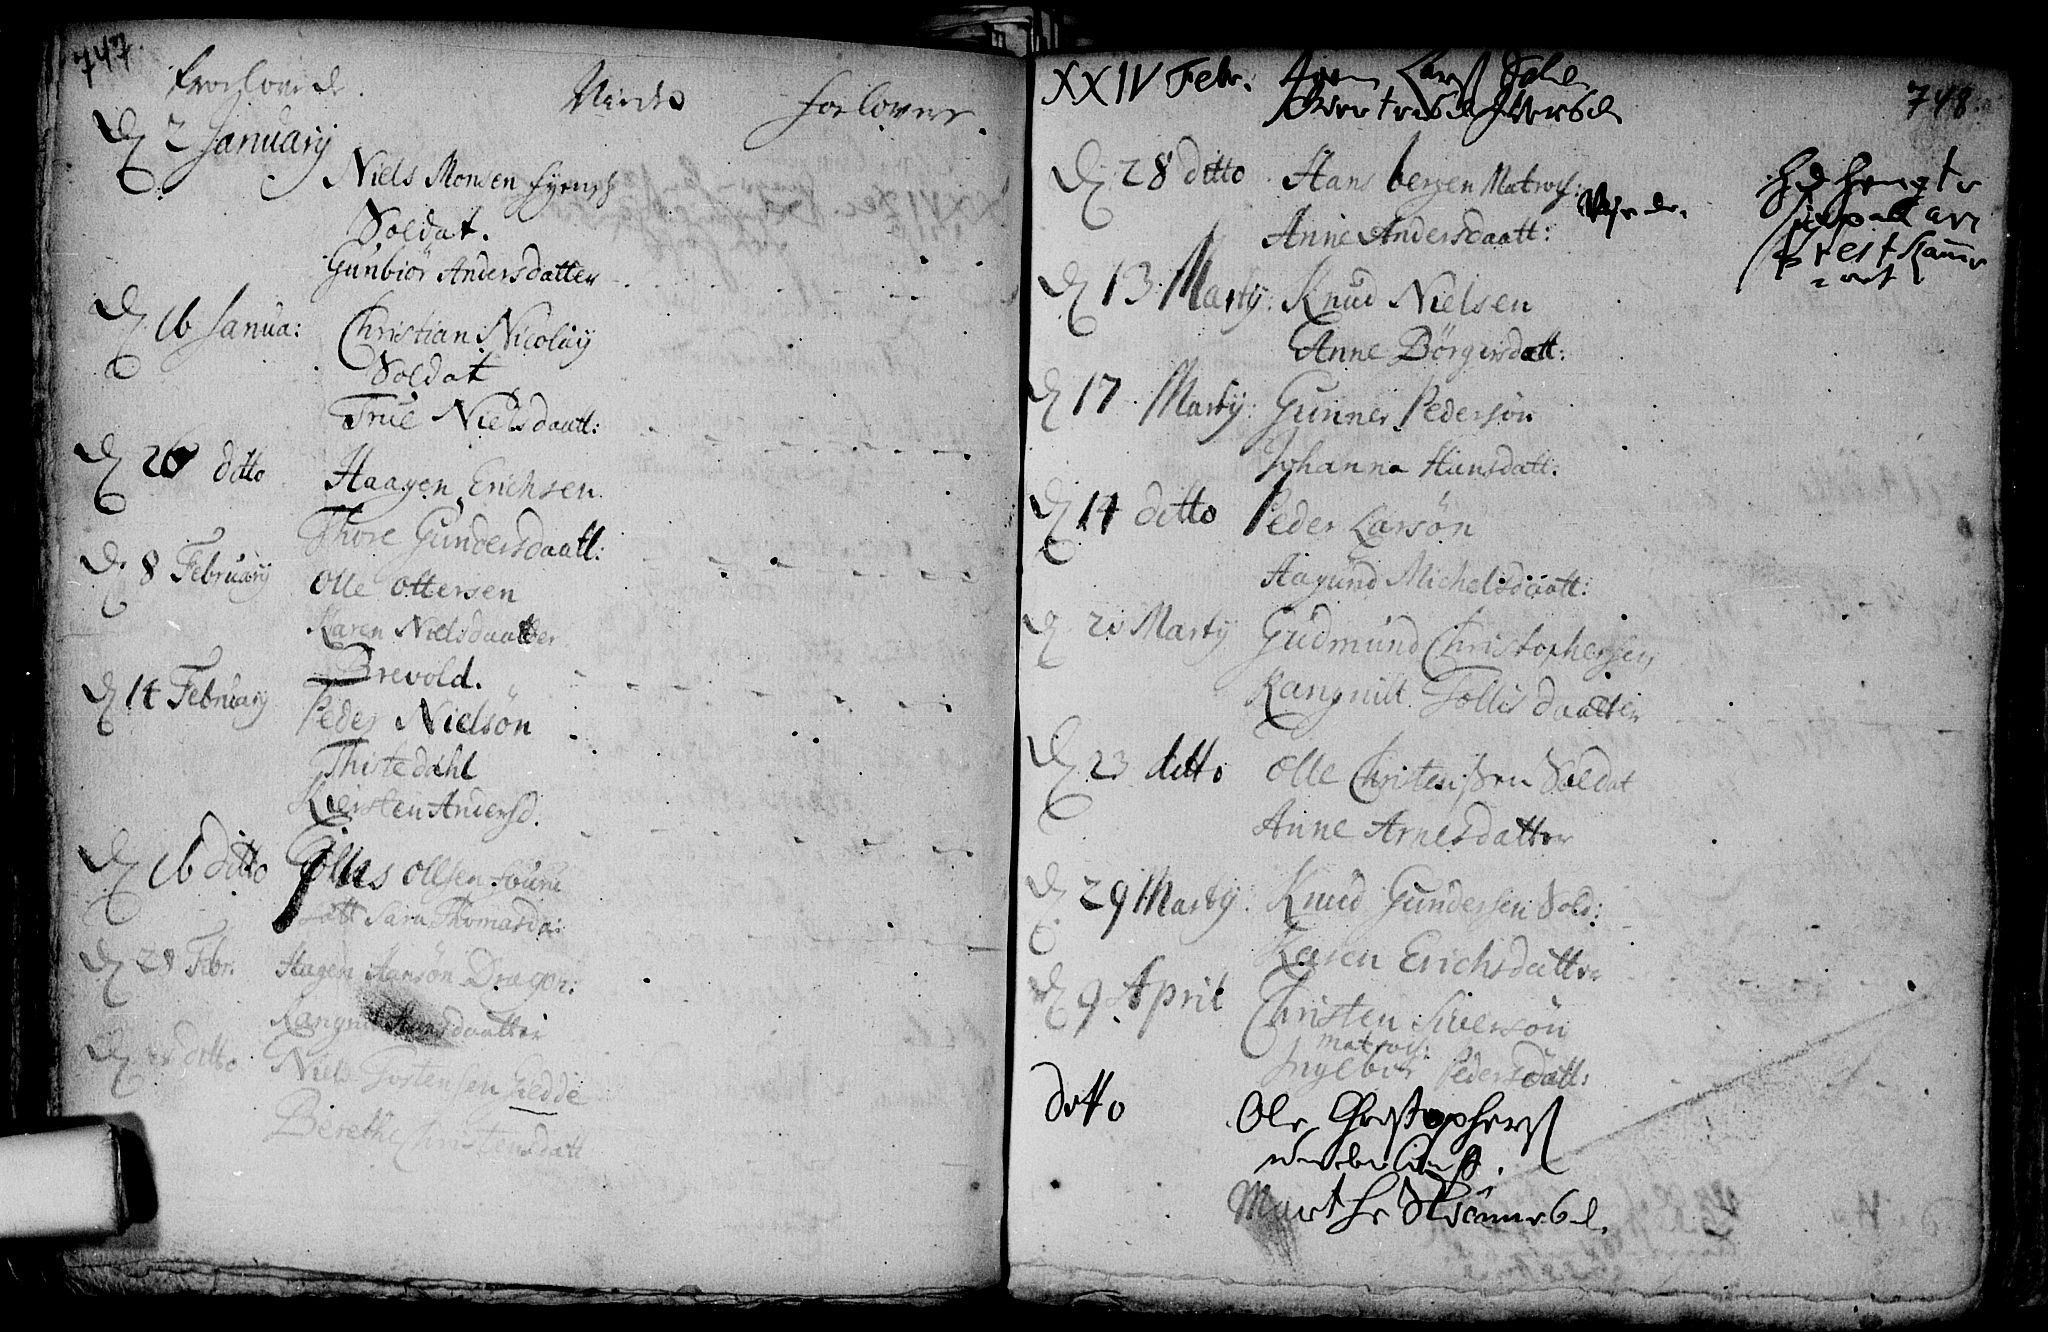 747.
Trolovede Viede forlovere
D 2 January
Niels Monsen
Soldat.
Gunbiör Andersdatter
D 16 Janua: Christian Nicolay
Soldat
True Nielsdaatt:
D 26 ditto Haagen Erichsen
Thore Gundersdaatt:
D. 8 February Olle Ottersen
Karen Nielsdaatter
Brevold.
D 14 February Peder Nielsön
Thistedahl
Kiersten Andersd.
D 16 ditto Ollsen
Sara Thomasda:
D 28 Febr. Hagen Hansön Dragon:
Rangnil Hansdaatter
D ditto Niels Tostensen Giedde
Berethe Christensdatt
748.
XXIV Febr: Larss
D 28 ditto Hans bergen Matros:
Anne Andersdaatt:
D 13 Martij: Knud Nielsen
Anne Börgersdatt:
D 17 Martij: Gunner Pedersön
Johanna Hansdatt.
D 14 ditto Peder Larsön
Aagund Michelsdaatt:
D 20 Martij Gudmund Christophersen
Rangnill Tollisdaatter
D 23 ditto Olle Christenssen Soldat
Anne Arnesdatter
D 29 Martij Knud Gundersen Sold:
Karen Erichsdatter
D 9 April Christen Siversön
matros:
Ingebor Pedersdatt:
ditto Ole Christophers
Marthe